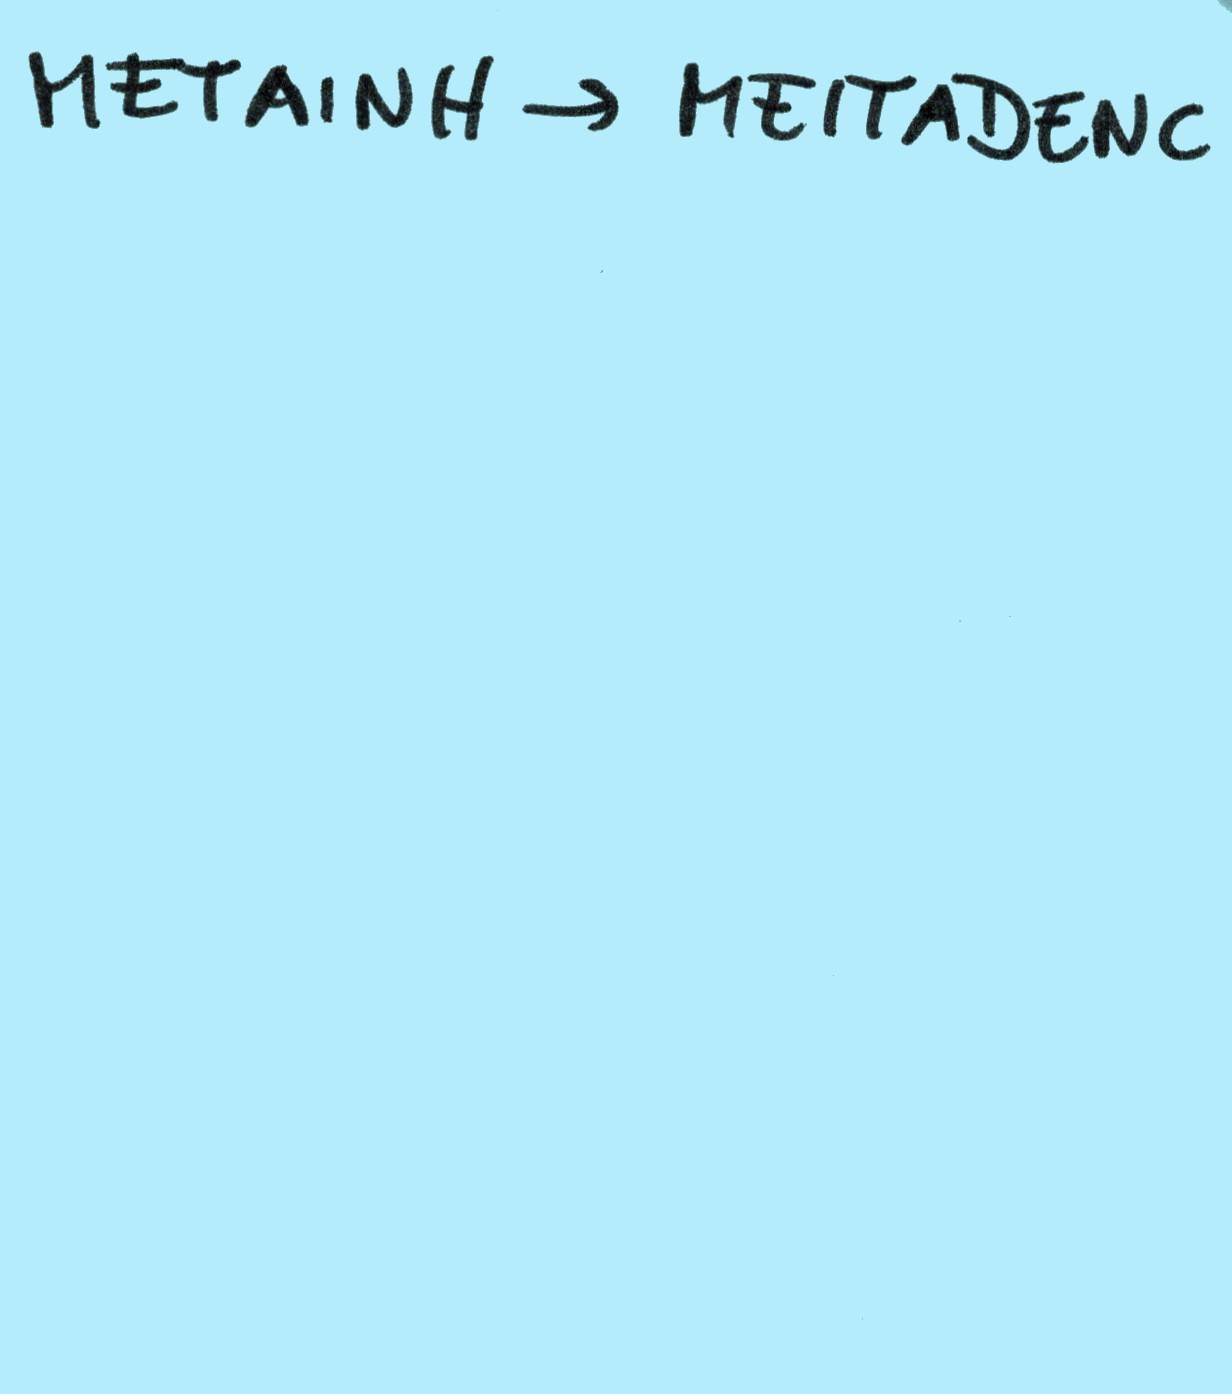 METAINH → MEITADENC